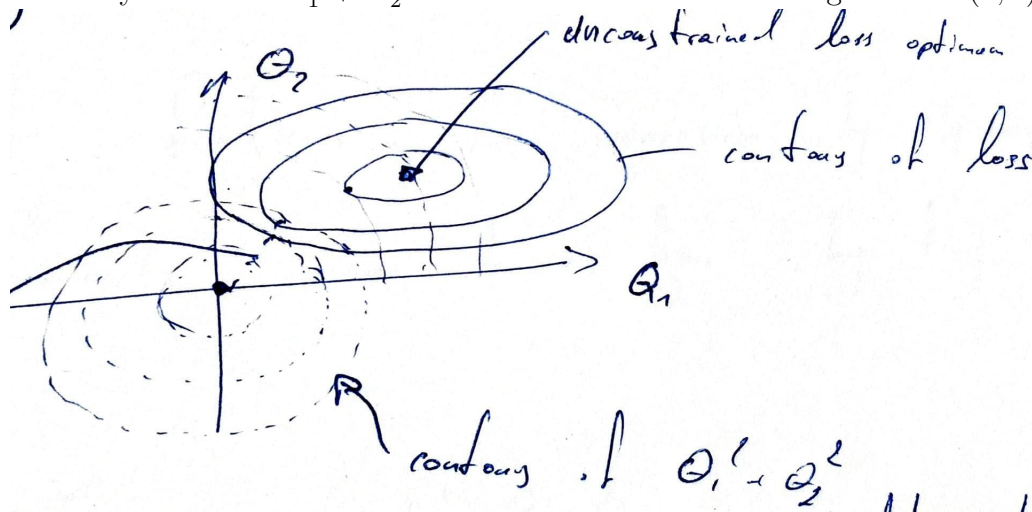 θ₂
unconstrained loss optimum
contours of loss
θ₁
contours of θ₁² + θ₂²